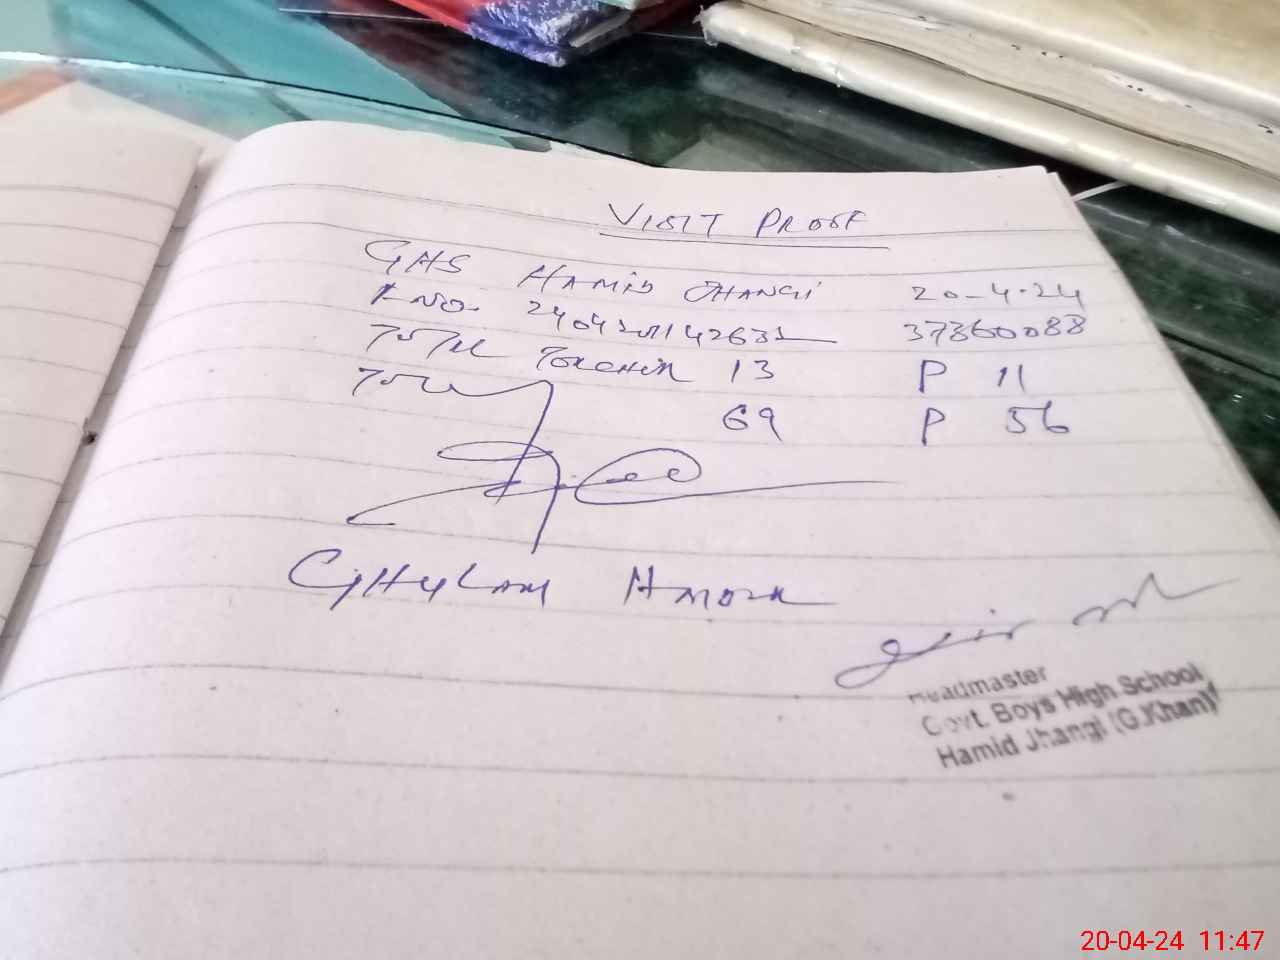 VISIT PROOF
GHS HAMID JHANGI 20-4-24
NO. 37360088
TOTAL TEACHER 13 P 11
TOTAL 69 P 56
GHULAM
Headmaster
Govt. Boys High School
Hamid Jhangi (G.Khan)
20-04-24 11:47